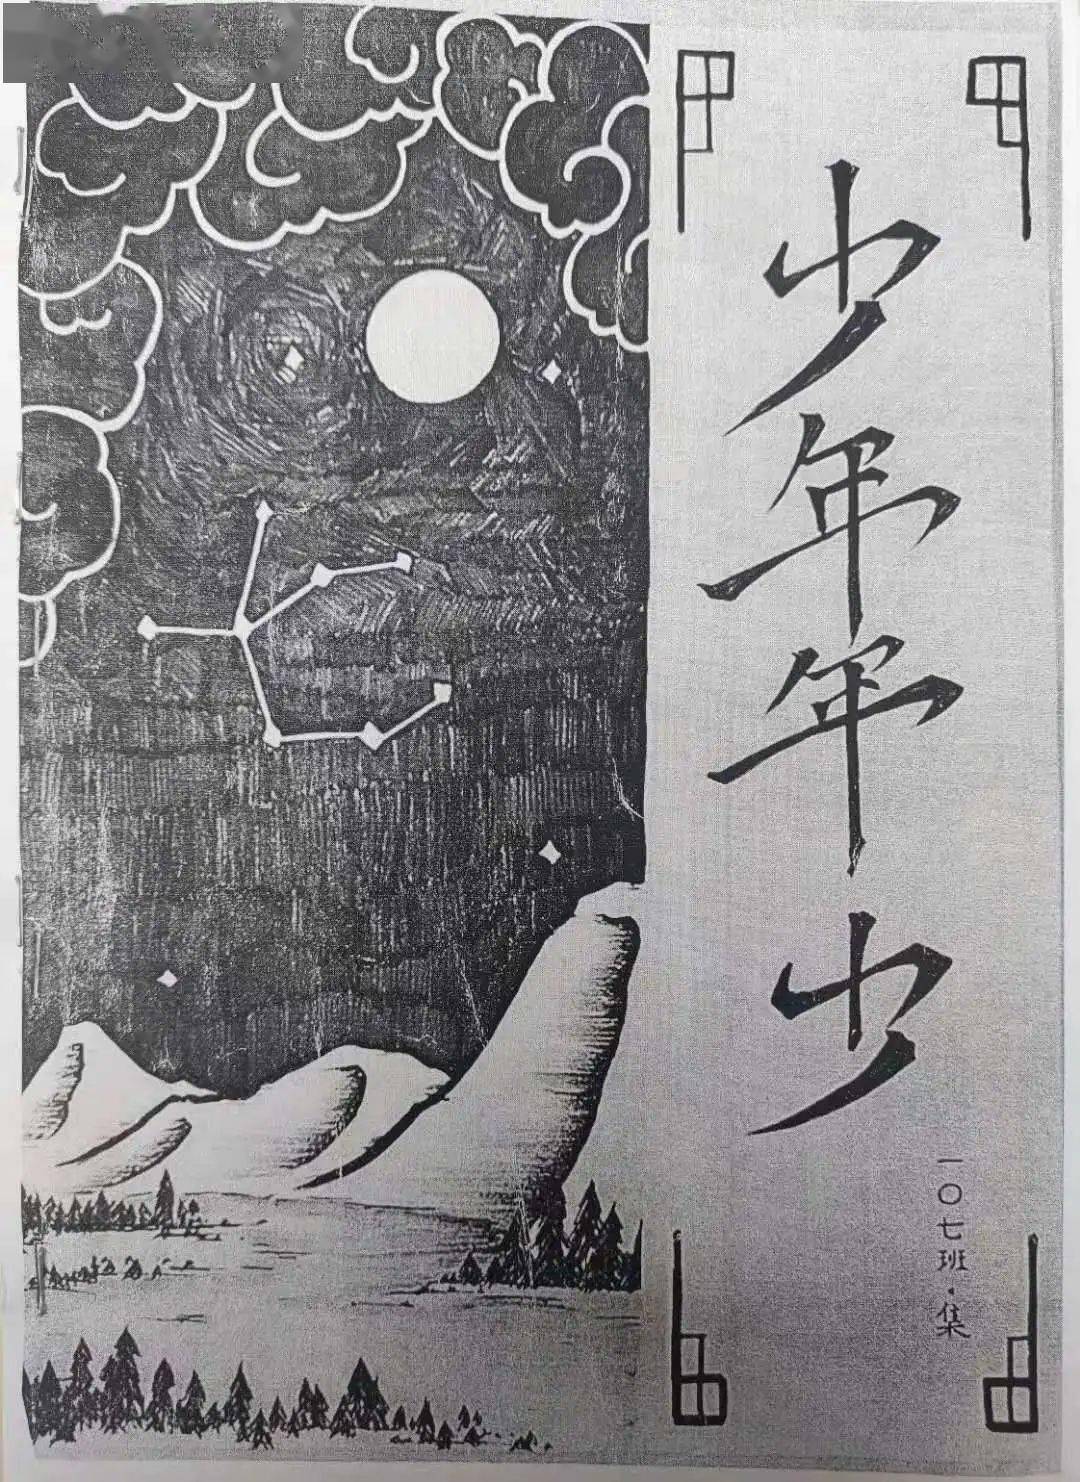 少年年少
一〇七班·集